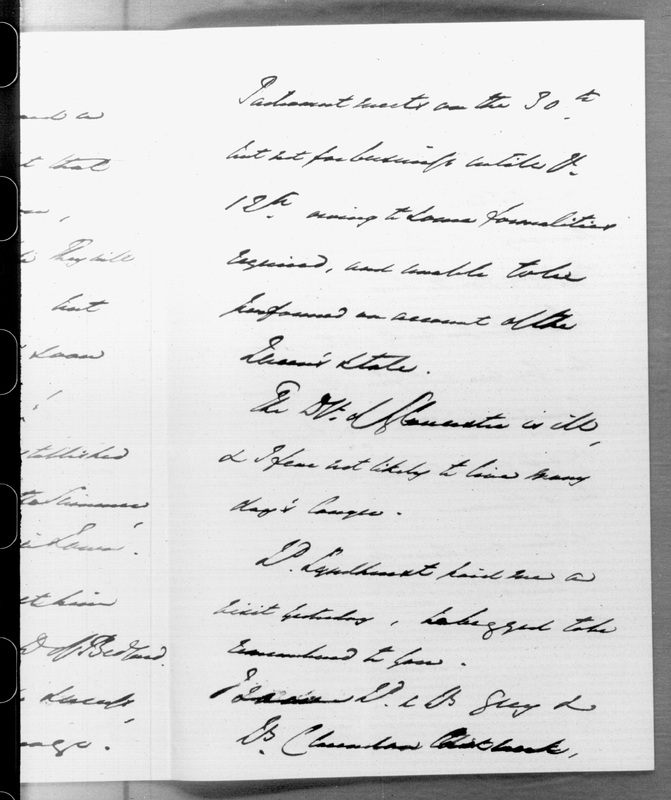 and a
t that
they will
but
soon
!
stablished
to Simmons
in Town.
et him
D of Bedford.
Parliament meets on the 30th
but not for business untill the
12th owing to some formalities
required, and unable to be
performed on account of the
Queen's state.
The Dss. of Gloucester is ill,
& I fear not likely to live many
day's longer.
Ld. Lyndhurst paid me a
visit yesterday, he begged to be
remembered to you.
Ld. & Ly Grey &
Ly. Clarendon